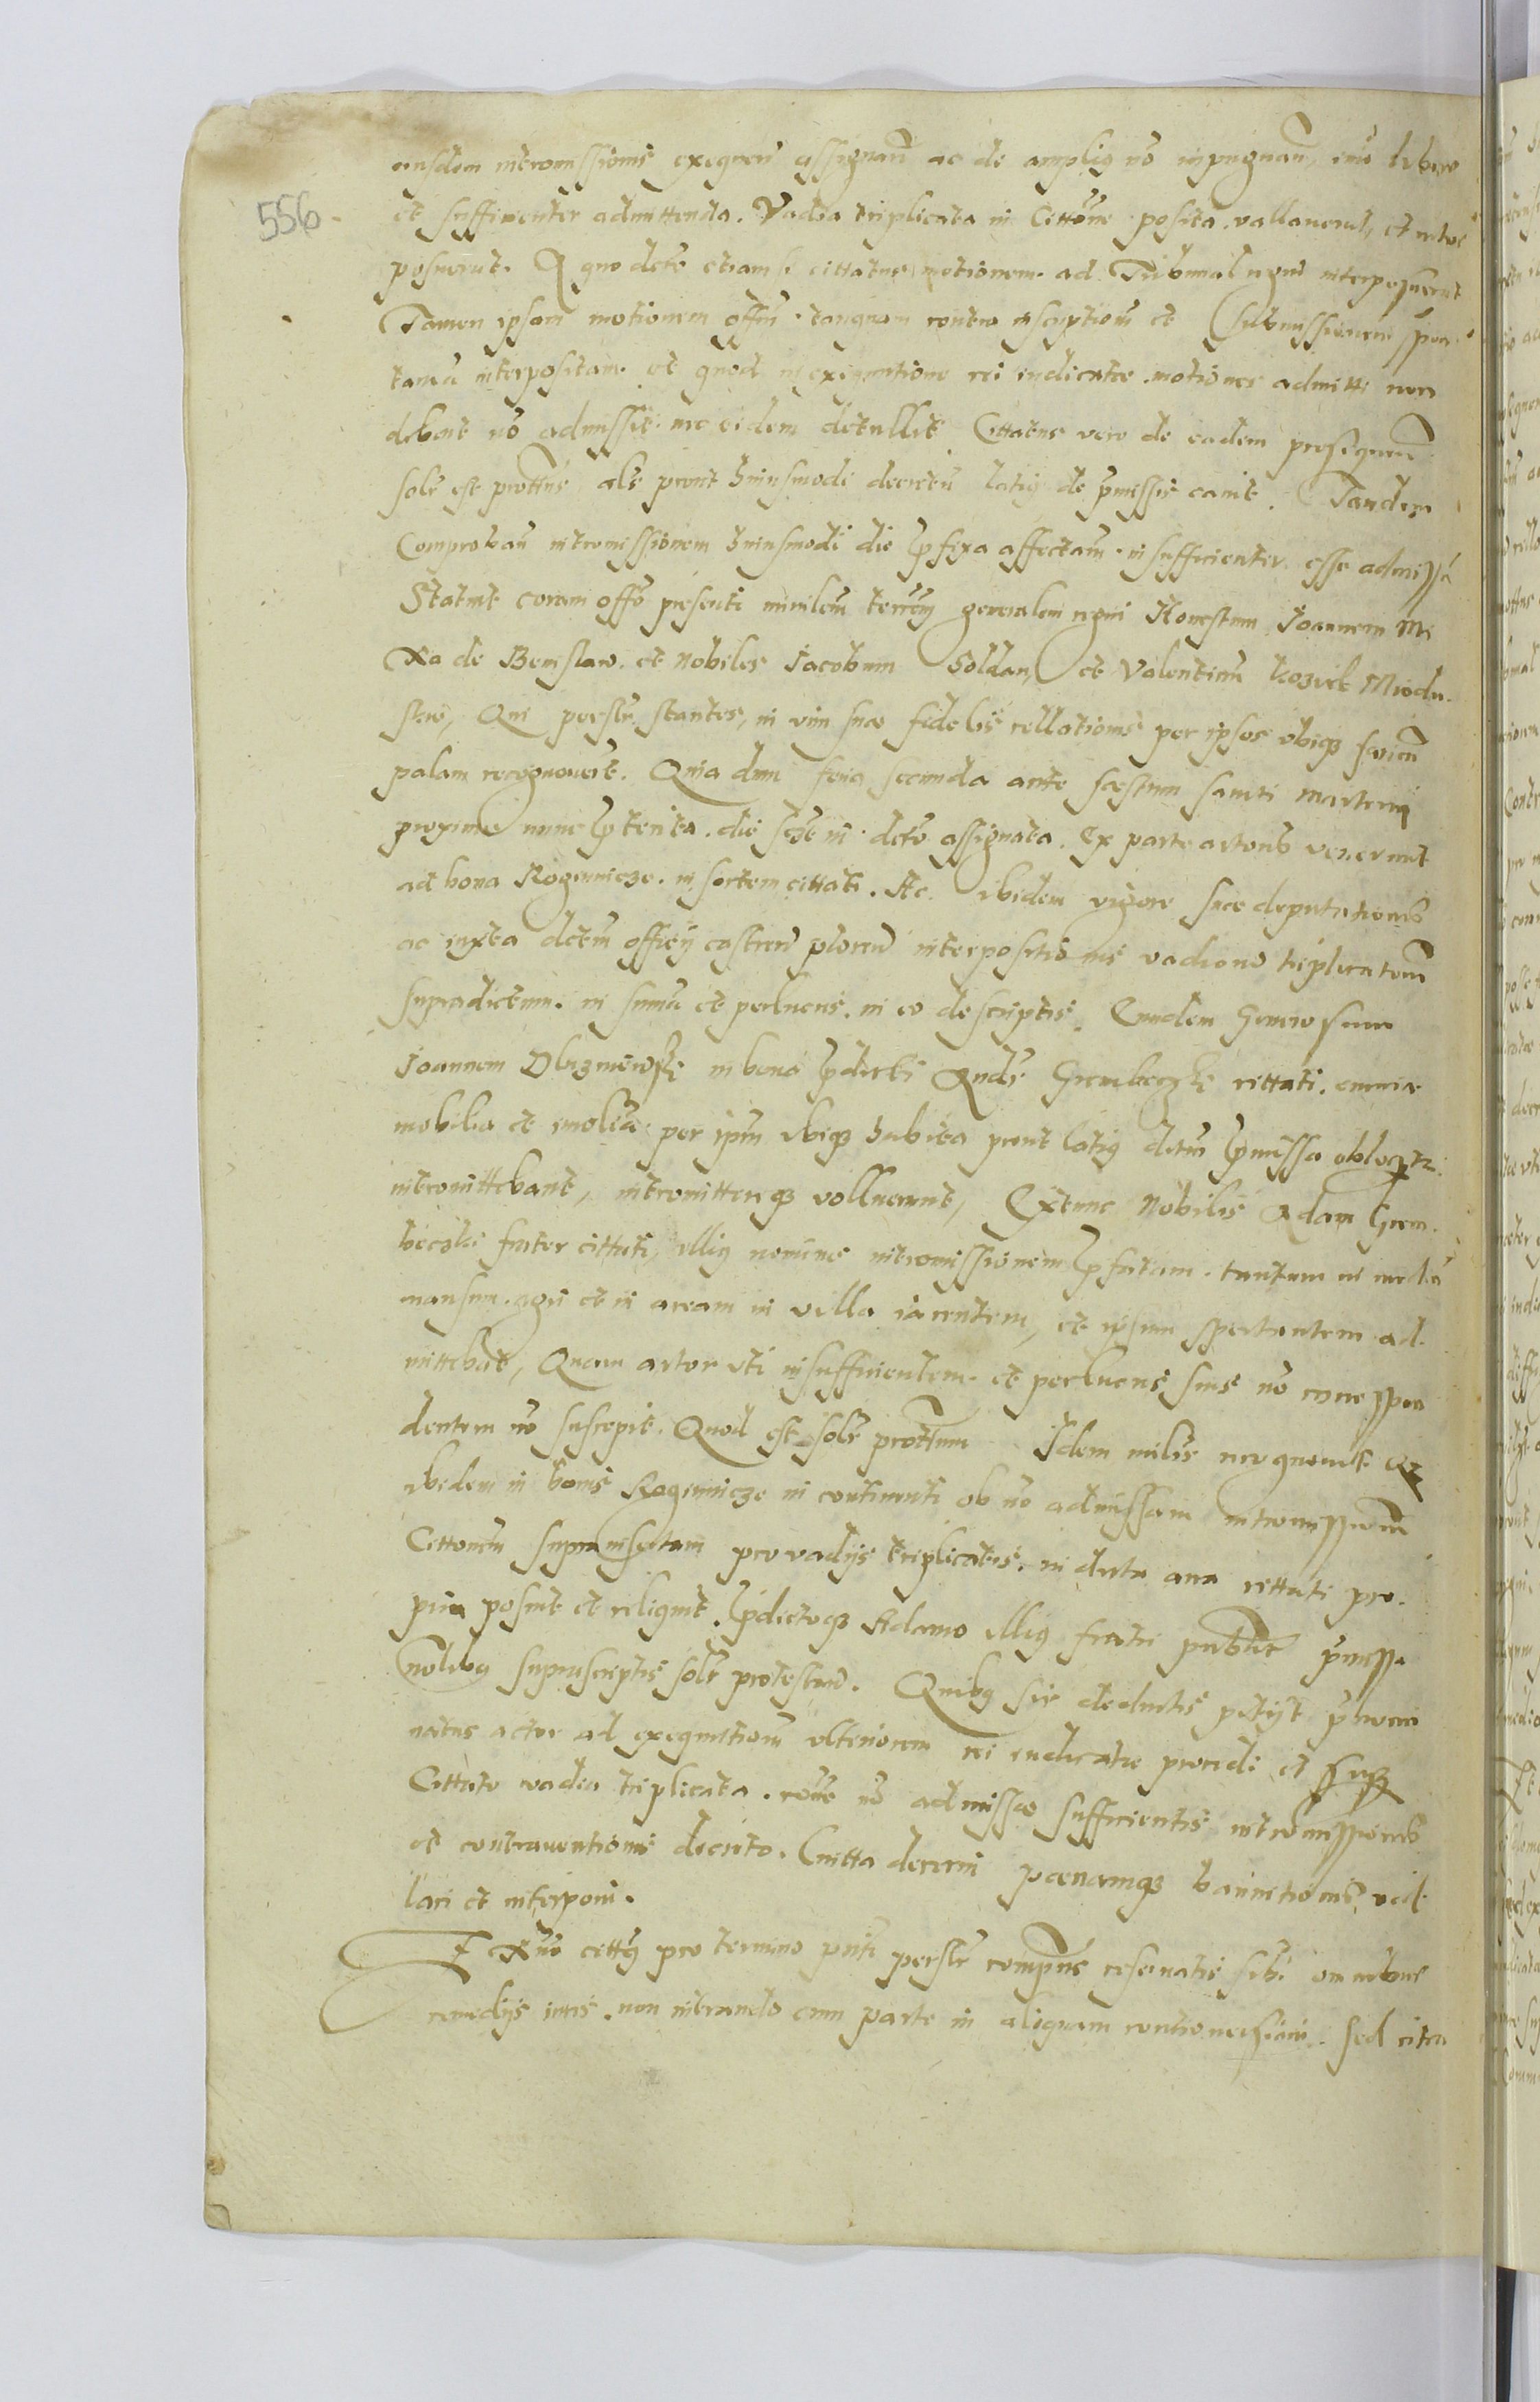 556
eiusdem intromissionis exequen assignan ac de ampliq no impugnan, imo libere
et sufficienter admittenda. Vadia triplicata in Cittõne posita vallaverut, et inter
posuerut. A quo dcto etiam si cittatus motionem ad Tribunal regni interposuerit
Tamen ipsam motionem offm tanquam contra inscriptionẽ et submissionem spon
taneã interpositam et quod in exequutione rei iudicatæ motiones admitti non
debent nõ admissit nec eidem detullit Cittatus vero de eadem prosequen
solr est prottus als prout huiusmodi decretũ latiq de pmissis canit. Tandem
Comproban intromissionem huiusmodi die pfixa affectam insufficienter esse admissã
Statuit coram offo presenti minilem terrẽm generalem regni Honestum Joannem Mi
xa de Bemslaw et Nobiles Jacobum Soldan, et Valentinũ Kozieł Miodu
ski, Qui persolr stantes, in vim suæ fidelis rellationis per ipsos ibiqz faciẽn
palam recognoverut. Quia dum feria secunda ante festum sancti Martini
proxime nunc pterita die scht in dcto assignata. Ex parte actoris venerunt
ad bona Rogienicze in sortem cittati. Ac ibidem vigore suæ deputationis
ac iuxta dctm officij castren plocen interpositionis vadiorũ triplicatorũ
supradictum in sumã et perlucris in eo descriptis. Eundem Generosum
Joannem Obrzmiewski in bona pdicti Andr Grembeczki cittati omnia
mobilia et imobilia per ipm ubiqz habita prout latiq dctm pmissa obloqr
intromittebant, intromittereqz volluerunt, Extunc Nobilis Adam Grem
beczki frater cittati, illiq nomine intromissionem pfatam tantum in mediũ
mansum agri et in aream in villa iacentem, et ipsum spectantem ad
mittebat, Quam actor uti insufficientem et perlucris suis nõ correspon
dentem nõ suscepit. Quod est solr prottum Idem milis recognovit Qz
ibidem in bonis Rogienicze in continenti ob nõ admissam intromissionem
Cittonem suprainsertam pro vadijs triplicatis in dicta aria cittati pro
pria posuit et reliquit. pdictoqz Adamo illiq fratri publicr pmissa
nobilibq suprascriptis solr protestan. Quibq sic deductis petijt pnomi
natus actor ad exequutionẽ ulteriorem rei iudicatæ procedi et suqz
Cittato vadia triplicata rõne nõ admissæ sufficientis intromissionis
et contraventionis decreto. Cuitta decerni pœnamqz bannitionis, val
lari et interponi.
Ex Ano cittq pro termino pnti persolr comparens reservatis sibi omnibus
remedijs iuris non intrando cum parte in aliquam controversiam. Sed citra